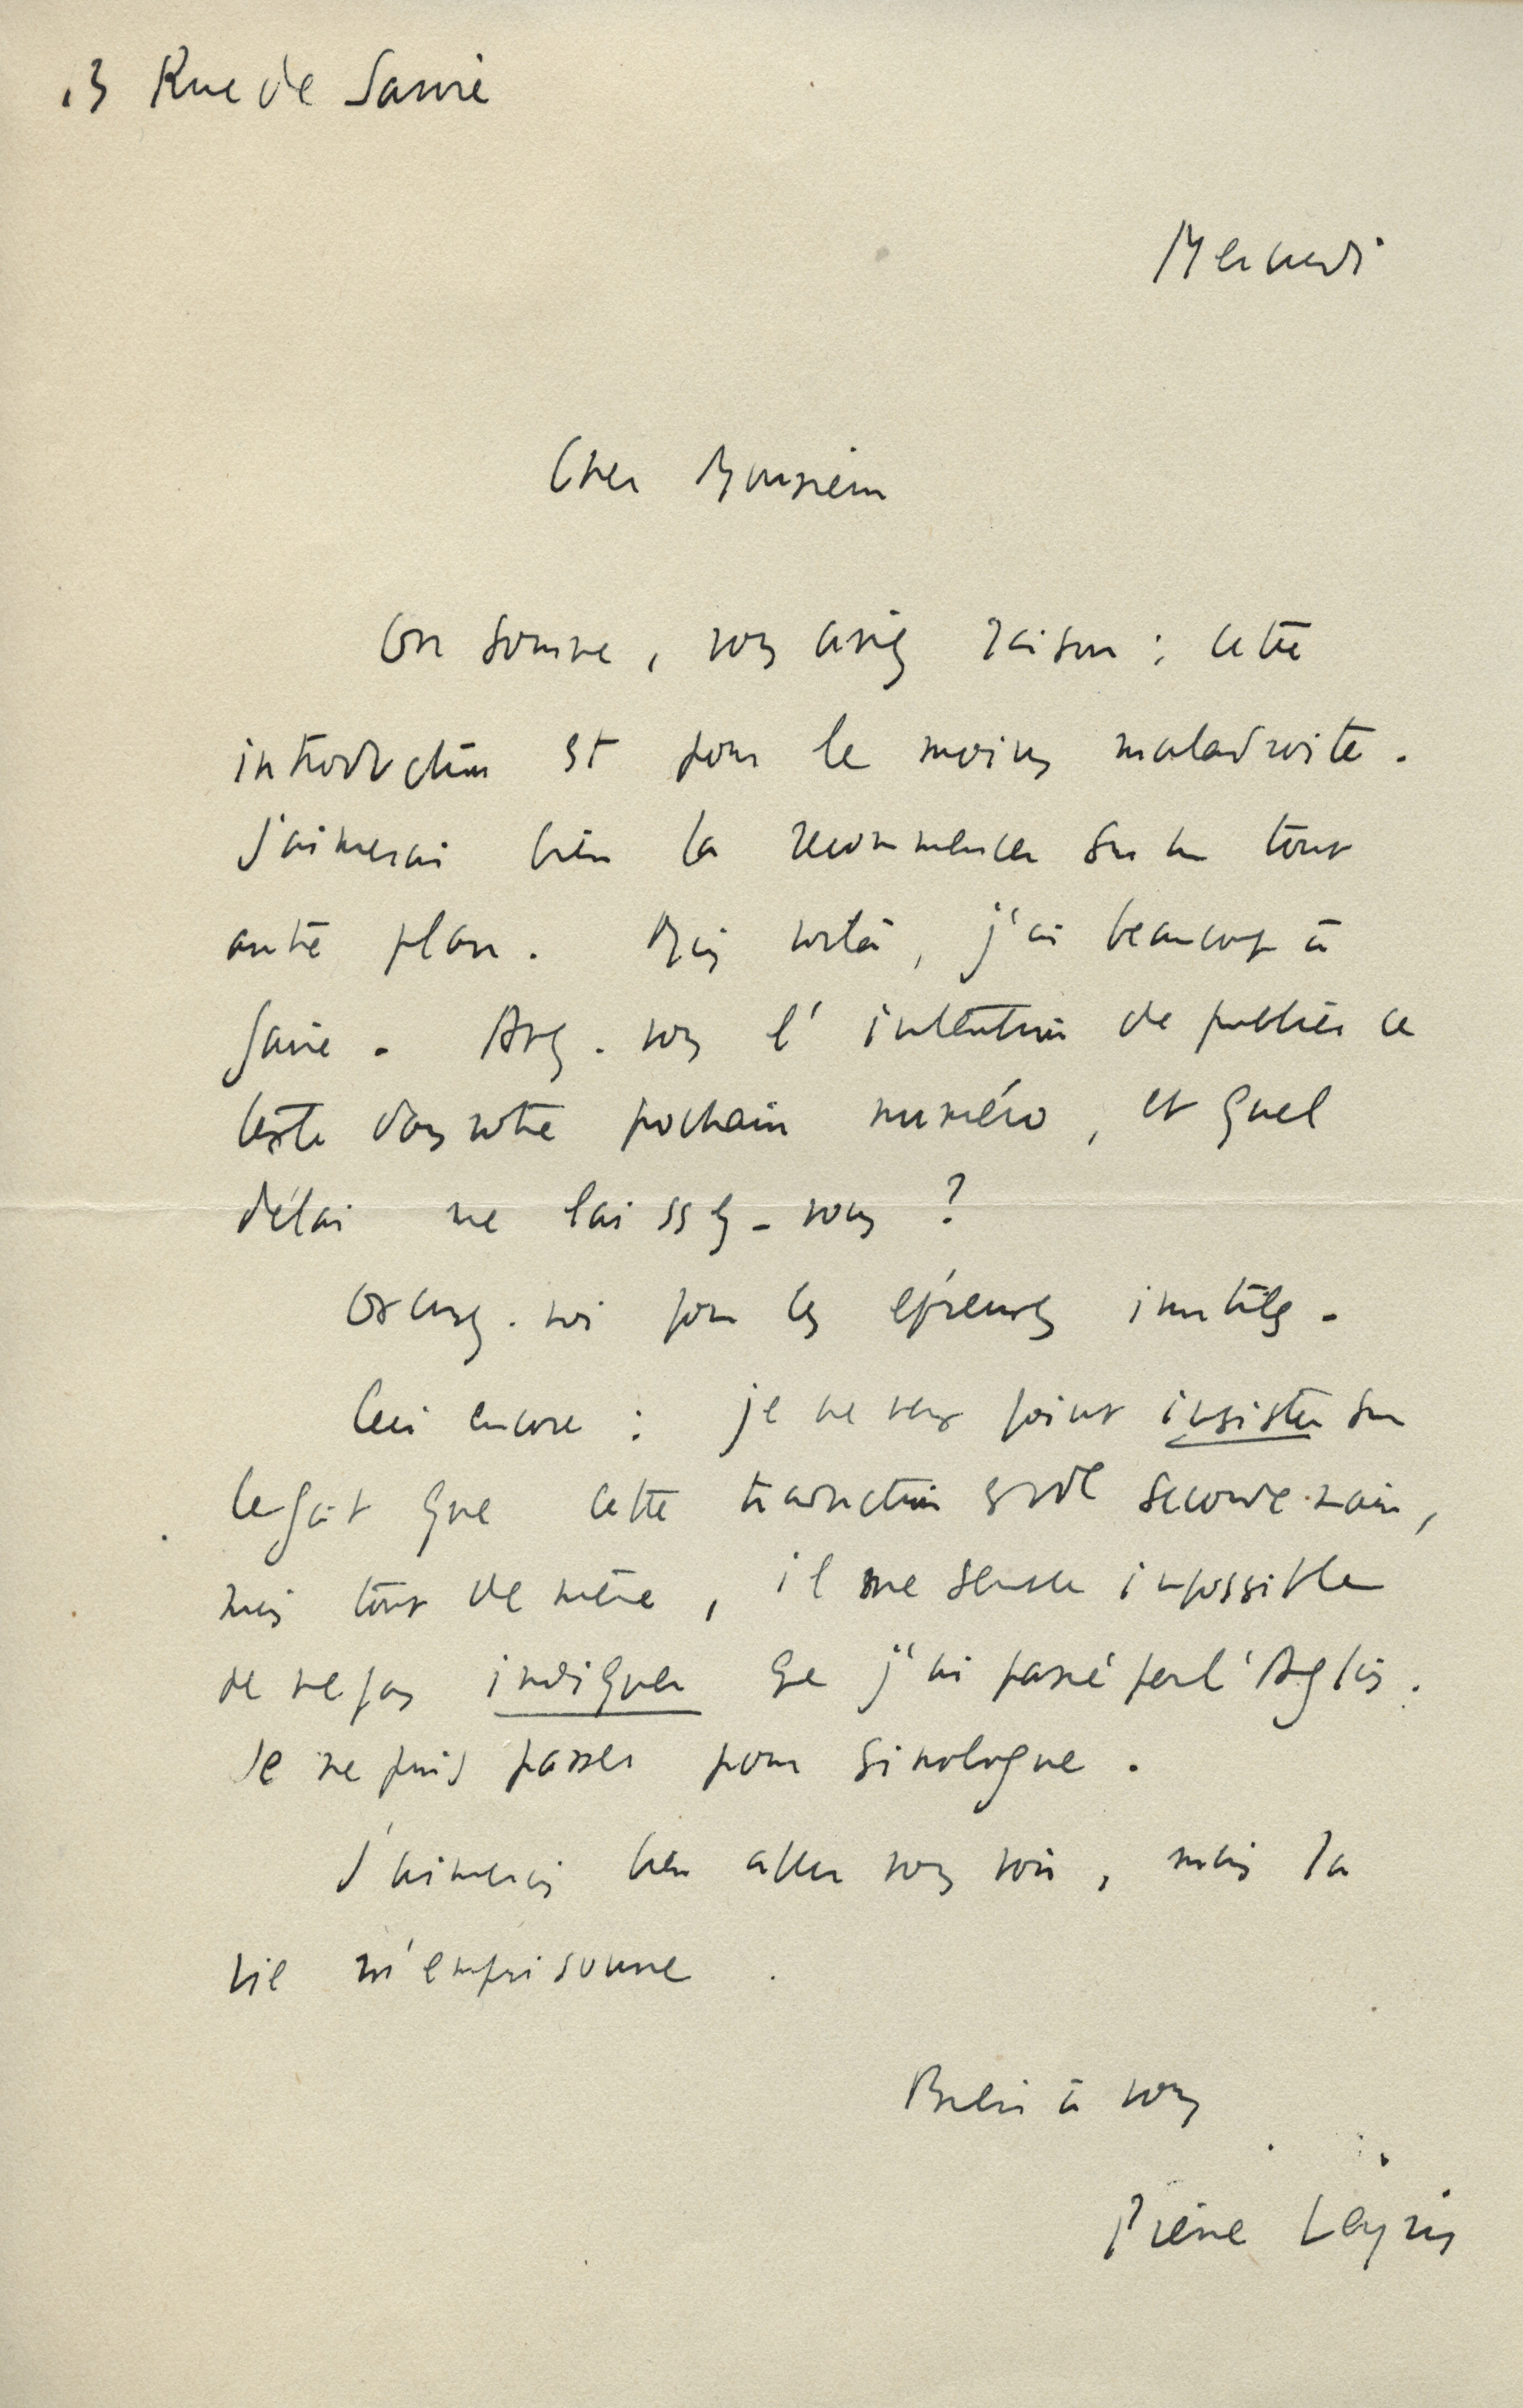 13 Rue de Savoie
Mercredi
Cher Monsieur
En somme, vous aviez raison : cette
introduction est pour le moins maladroite.
J'aimerai bien la recommencer sur un tout
autre plan. Mais voilà, j'ai beaucoup à
faire. Avez-vous l'intention de publier ce
texte dans votre prochain numéro, et quel
délai me laissez-vous ?
Excusez-moi pour les épreuves inutiles.
Ceci encore : je ne veux point insister sur
le fait que cette traduction est de seconde main,
mais tout de même, il me semble impossible
de ne pas indiquer que j'ai passé par l'Anglais.
Je ne puis passer pour sinologue.
J'aimerais bien aller vous voir, mais la
vie m'emprisonne.
Bien à vous
Pierre Leyris